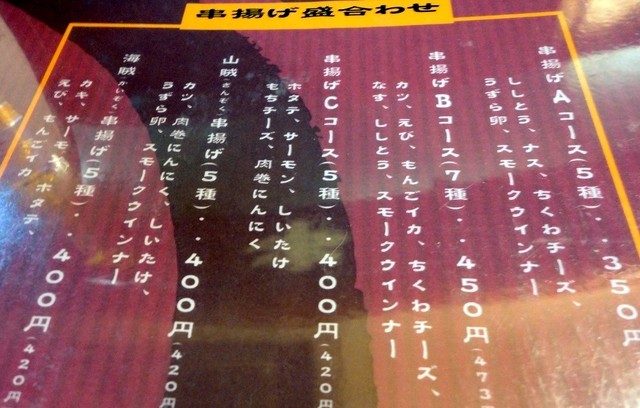 串揚げ盛合わせ
串揚げAコース(5種)・・350円
ししとう、ナス、ちくわチーズ、
うずら卵、スモークウインナー
串揚げBコース(7種)・・450円(473
カツ、えび、もんごイカ、ちくわチーズ、
なす、ししとう、スモークウインナー
串揚げCコース(5種)・・400円(420円)
ホタテ、サーモン、しいたけ
もちチーズ、肉巻にんにく
山賊さんぞく串揚げ(5種)・・400円(420円
カツ、肉巻にんにく、しいたけ、
うずら卵、スモークウインナー
海賊かいぞく串揚げ(5種)・・400円(420円
カキ、サーモン、
えび、もんごイカ、ホタテ、